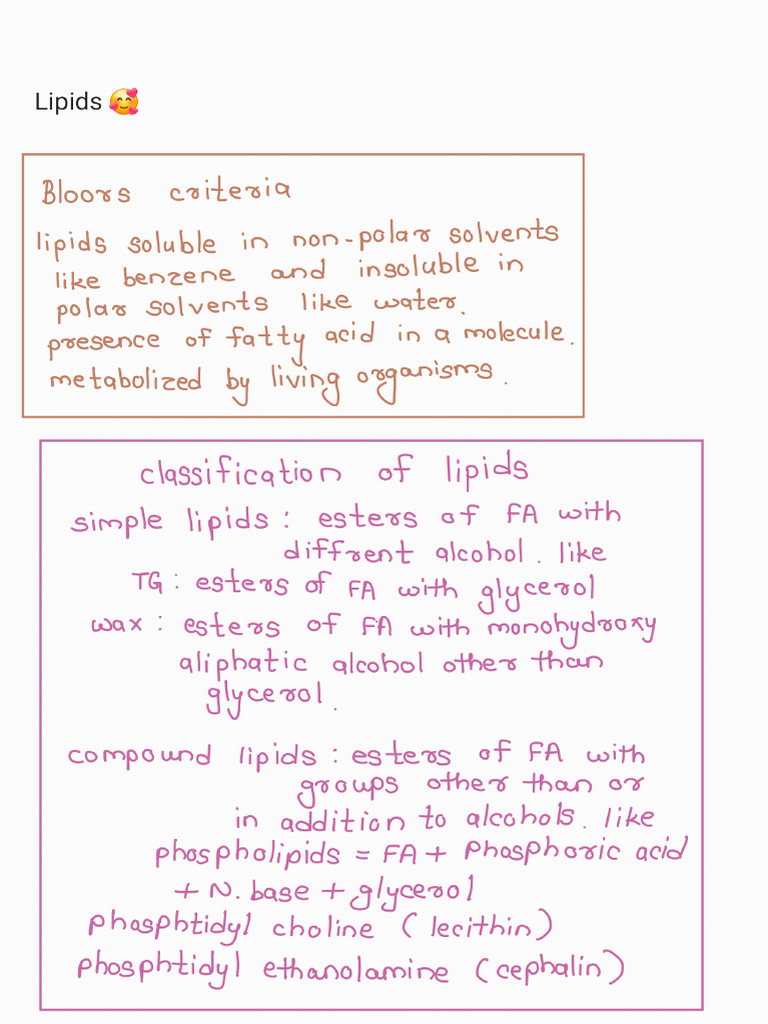 Lipids 🥰
Bloors criteria
lipids soluble in non-polar solvents
like benzene and insoluble in
polar solvents like water.
presence of fatty acid in a molecule.
metabolized by living organisms.
classification of lipids
simple lipids : esters of FA with
diffrent alcohol. like
TG : esters of FA with glycerol
wax : esters of FA with monohydroxy
aliphatic alcohol other than
glycerol.
compound lipids : esters of FA with
groups other than or
in addition to alcohols. like
phospholipids = FA + Phosphoric acid
+ N. base + glycerol
phosphtidyl choline (lecithin)
phosphtidyl ethanolamine (cephalin)